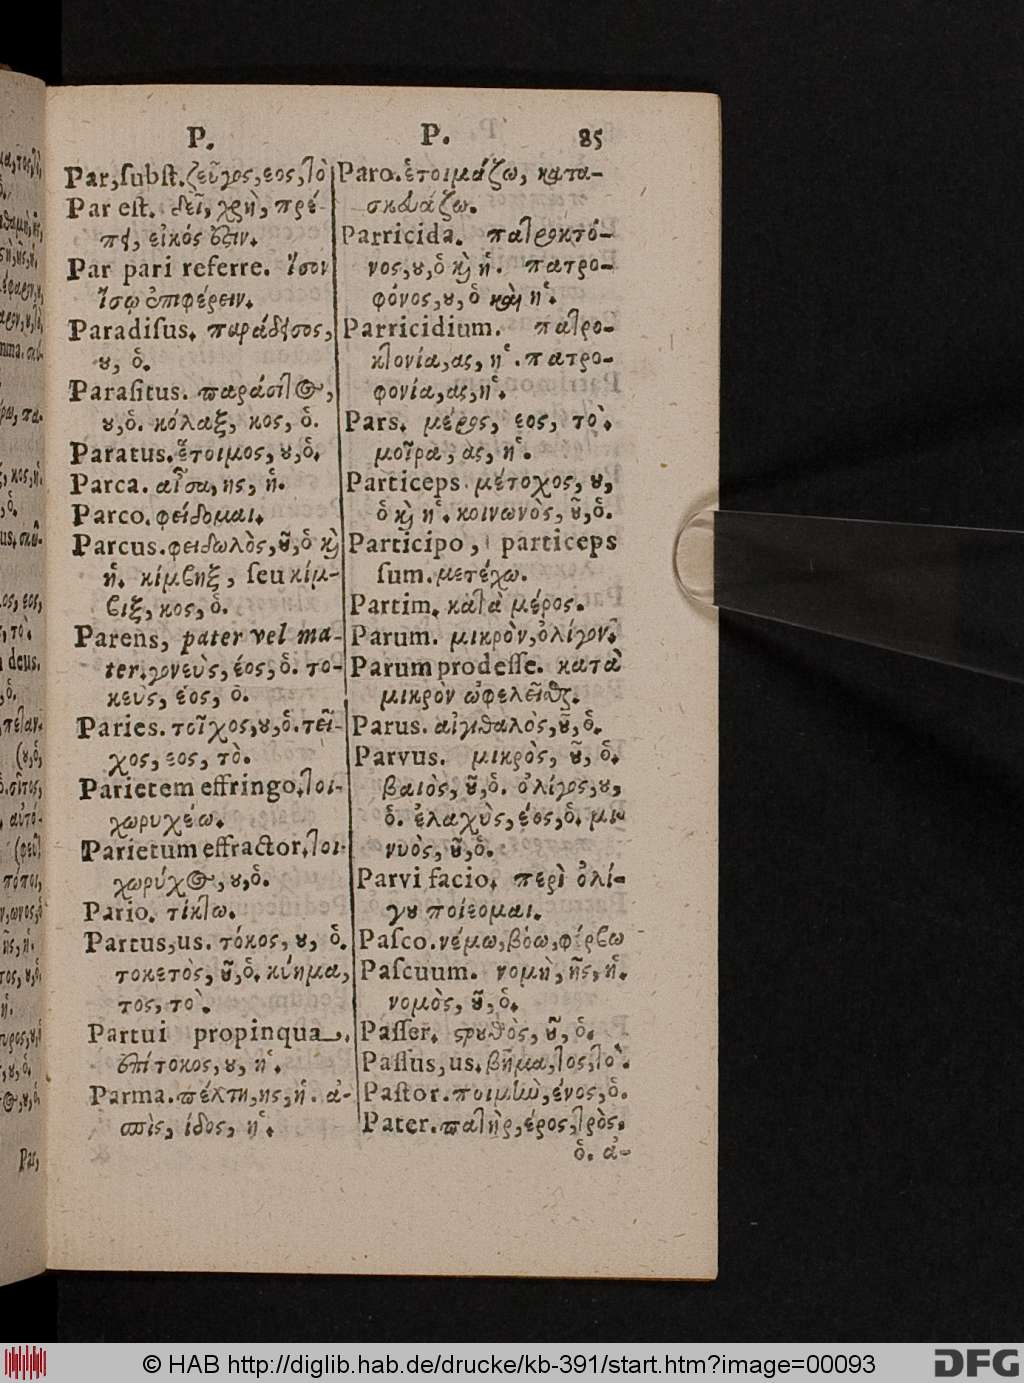 P.
Par, subst. ζεῦγος, εος, τὸ
Par est. δεῖ, χρὴ, πρέ-
πει, εἰκός ἐστιν.
Par pari referre. ἴσον
ἴσῳ ἐπιφέρειν.
Paradisus. παράδεισος,
ου, ὁ.
Parasitus. παράσιτος,
ου, ὁ. κόλαξ, κος, ὁ.
Paratus. ἕτοιμος, ου, ὁ.
Parca. αἶσα, ης, ἡ.
Parco. φείδομαι.
Parcus. φειδωλὸς, οῦ, ὁ καὶ
ἡ. κίμβηξ, seu κίμ-
βιξ, κος, ὁ.
Parens, pater vel ma-
ter. γονεὺς, έος, ὁ. το-
κεὺς, έος, ὁ.
Paries. τοῖχος, ου, ὁ. τεῖ-
χος, εος, τὸ.
Parietem effringo. τοι-
χωρυχέω.
Parietum effractor. τοι-
χωρύχος, ου, ὁ.
Pario. τίκτω.
Partus, us. τόκος, ου, ὁ.
τοκετὸς, οῦ, ὁ. κύημα,
τος, τὸ.
Partui propinqua.
ἐπίτοκος, ου, ἡ.
Parma. πέλτη, ης, ἡ. ἀ-
σπὶς, ίδος, ἡ.
P. 85
Paro. ἑτοιμάζω, κατα-
σκευάζω.
Parricida. πατροκτό-
νος, ου, ὁ καὶ ἡ. πατρο-
φόνος, ου, ὁ καὶ ἡ.
Parricidium. πατρο-
κτονία, ας, ἡ. πατρο-
φονία, ας, ἡ.
Pars. μέρος, εος, τὸ.
μοῖρα, ας, ἡ.
Particeps. μέτοχος, ου,
ὁ καὶ ἡ. κοινωνὸς, οῦ, ὁ.
Participo, particeps
sum. μετέχω.
Partim. κατὰ μέρος.
Parum. μικρὸν, ὀλίγον.
Parum prodesse. κατὰ
μικρὸν ὠφελεῖσθαι.
Parus. αἰγιθαλὸς, οῦ, ὁ.
Parvus. μικρὸς, οῦ, ὁ.
βαιὸς, οῦ, ὁ. ὀλίγος, ου,
ὁ. ἐλαχὺς, έος, ὁ. μι-
νυὸς, οῦ, ὁ.
Parvi facio. περὶ ὀλί-
γου ποιέομαι.
Pasco. νέμω, βόω, φέρβω
Pascuum. νομὴ, ῆς, ἡ.
νομὸς, οῦ, ὁ.
Passer. στρουθὸς, οῦ, ὁ.
Passus, us. βῆμα, τος, τὸ.
Pastor. ποιμὴν, ένος, ὁ.
Pater. πατὴρ, έρος, τρὸς.
ὁ. ἀ-
© HAB http://diglib.hab.de/drucke/kb-391/start.htm?image=00093
DFG